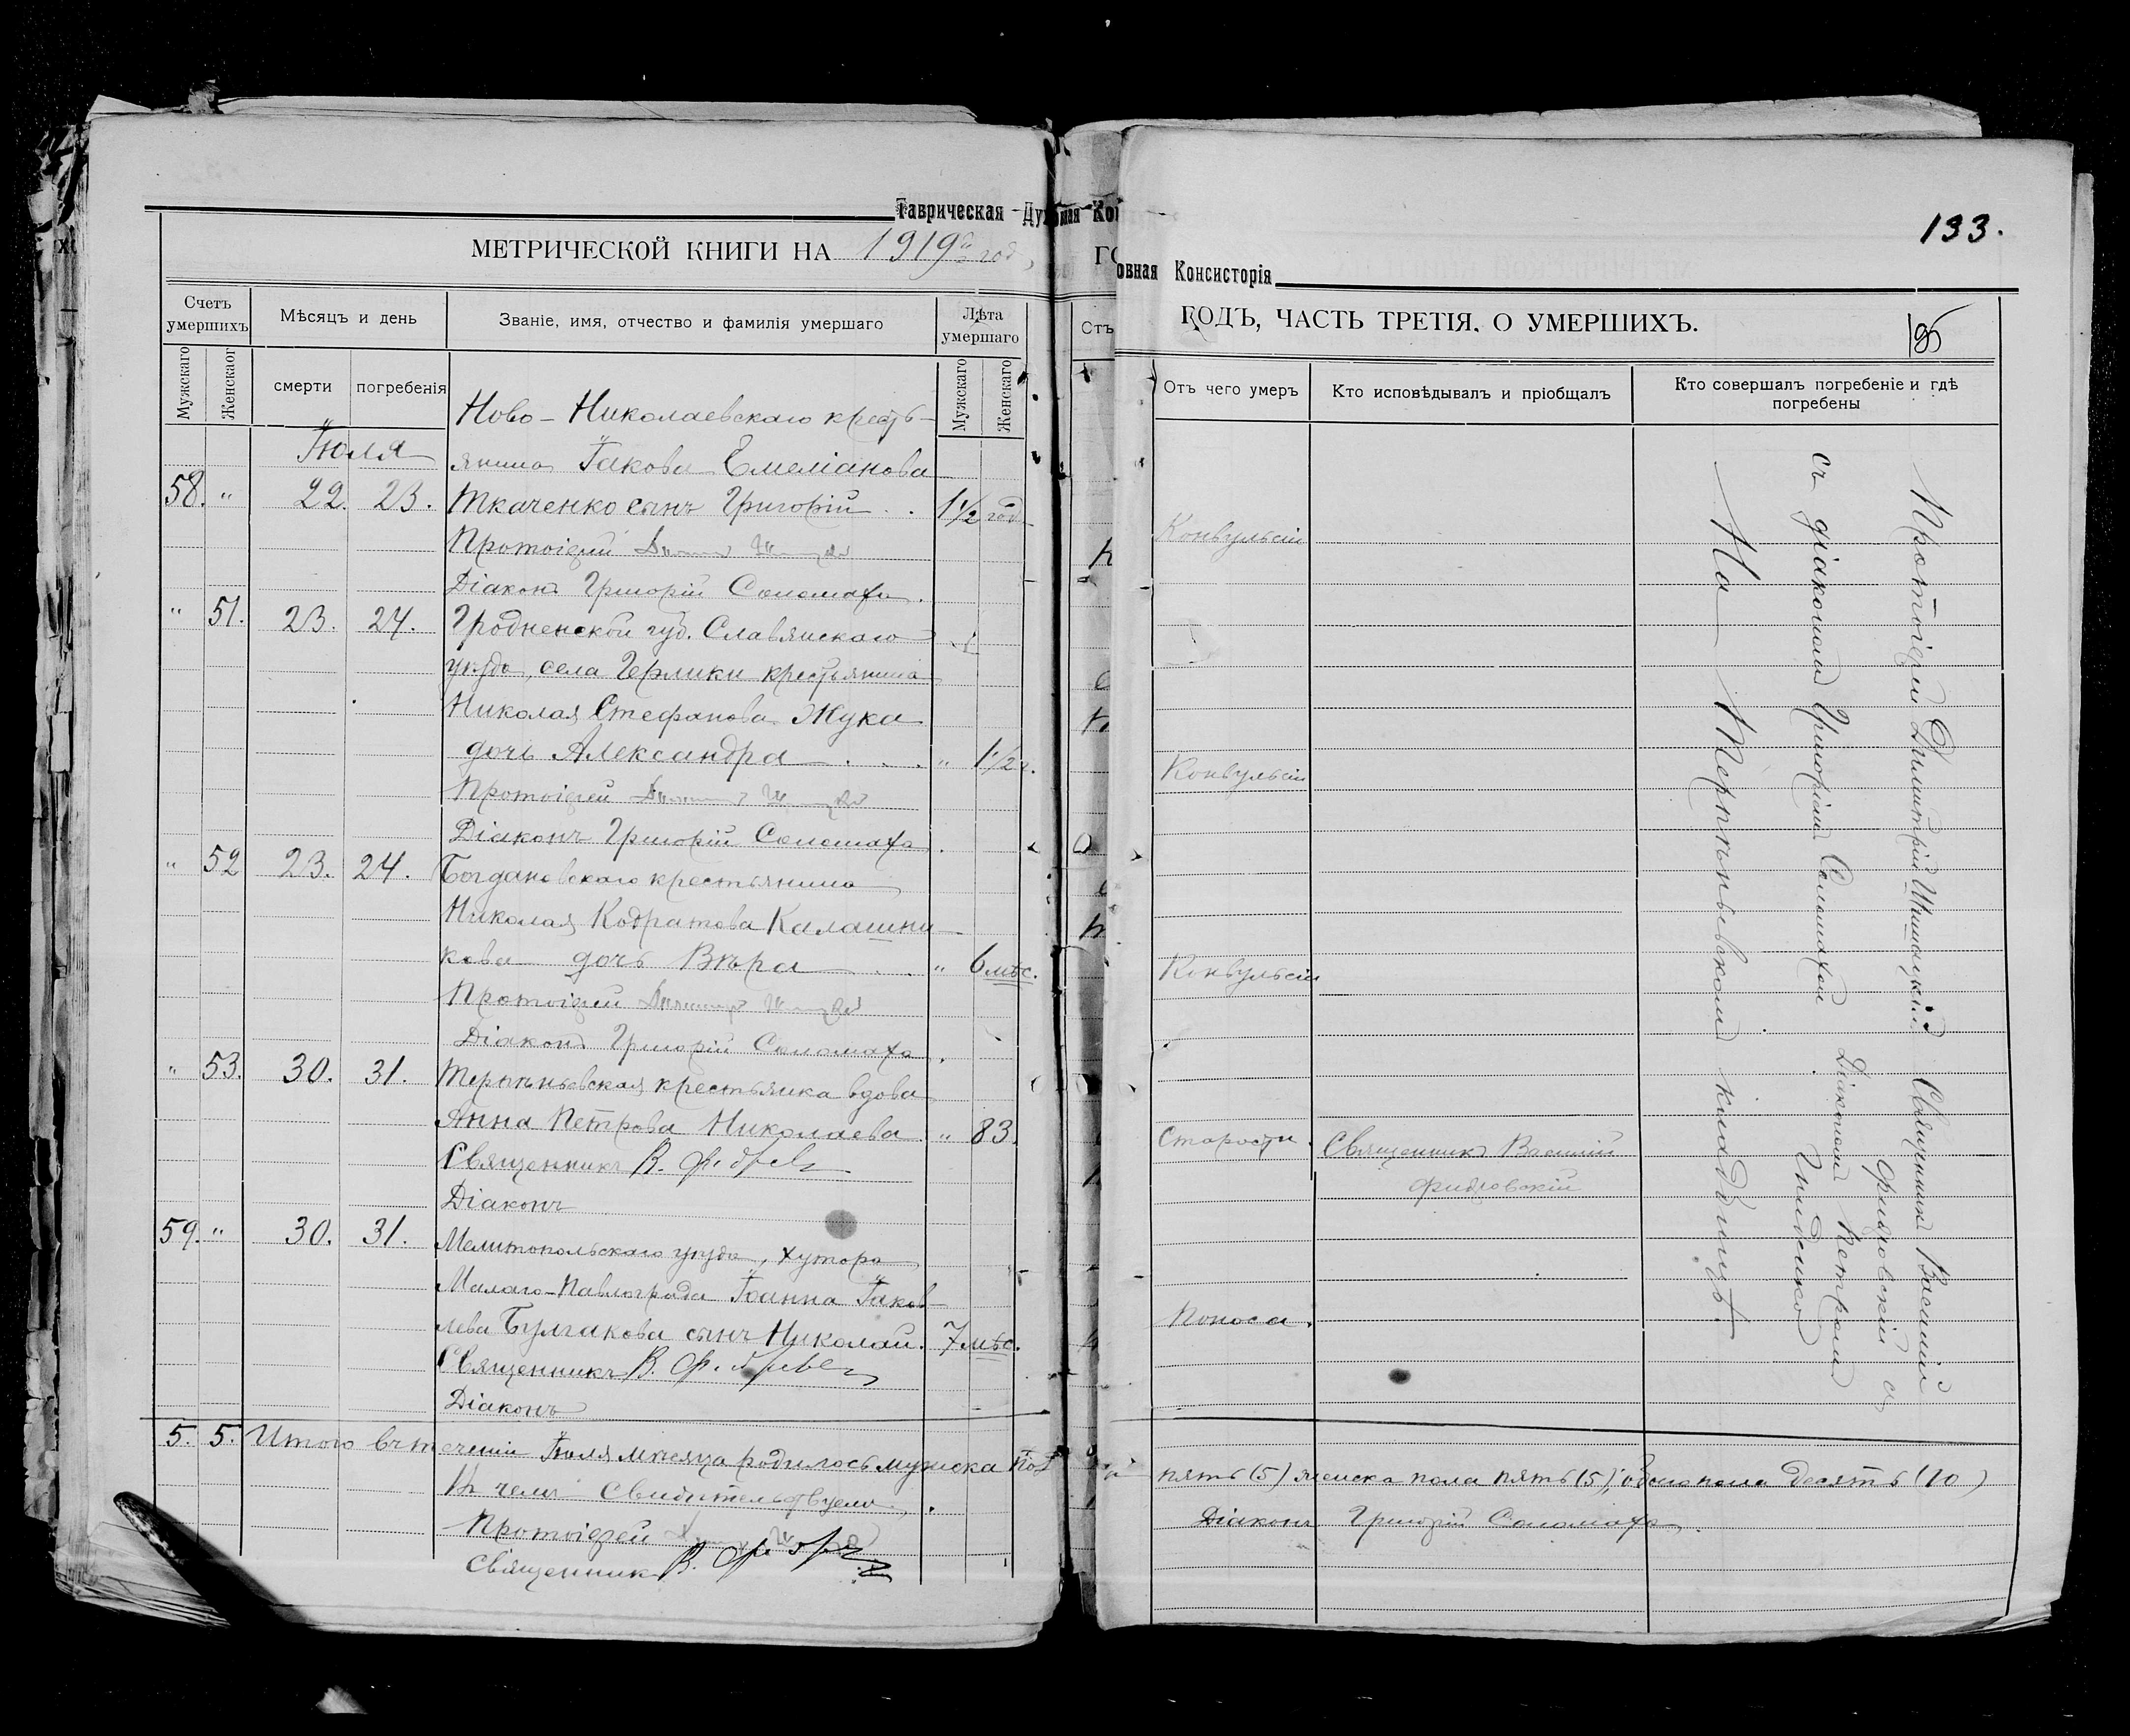 Таврическая Духовная Ко
МЕТРИЧЕСКОЙ КНИГИ НА 1919й год,
Счетъ умершихъ
Мѣсяцъ и день
Званіе, имя, отчество и фамилія умершаго
Лѣта умершаго
Мужскаго
Женскаог
смерти
погребенія
Мужскаго
Женскаго
Ново-Николаевскаго кресть-
Іюля
янина Іакова Емеліанова
58. " 22. 23. Ткаченко сынъ Григорій . . 1½ год
Протоіерей
Діаконъ Григорій Соломаха.
" 51. 23. 24. Гродненской губ. Славянскаго
уѣзда, села Герлики крестьянина
Николая Стефанова Жука
дочь Александра . . . " 1½ г.
Протоіерей
Діаконъ Григорій Соломаха.
" 52 23. 24. Богдановскаго крестьянина
Николая Кодратова Калашни-
кова дочь Вѣра . . " 6 мѣс.
Протоіерей
Діаконъ Григорій Соломаха.
" 53. 30. 31. Терпѣньевская крестьянка вдова
Анна Петрова Николаева. " 83.
Священникъ В.
Діаконъ
59. " 30. 31. Мелитопольскаго уѣзда, хутора
Малаго-Павлограда Іоанна Іаков-
лева Булгакова сынъ Николай. 7 мѣс.
Священникъ В.
Діаконъ
5. 5. Итого въ теченіи Іюля мѣсяца родилось мужска пол
въ чемъ свидѣтельствуемъ.
Протоіерей
Священникъ В.
133.
овная Консисторія
ГОДЪ, ЧАСТЬ ТРЕТІЯ. О УМЕРШИХЪ.
Отъ чего умеръ
Кто исповѣдывалъ и пріобщалъ
Кто совершалъ погребеніе и гдѣ погребены
Конвульсіи
Конвульсіи
Конвульсіи
Старости. Священникъ Василій
Фидровскій
Поноса.
Протоіерей Димитрій Священникъ Василій
Фидровскій съ
съ діакономъ Григоріемъ Соломахой Діакономъ Петромъ
Гниденко
На Терпѣньевскомъ кладбищѣ
пять (5) женска пола пять (5), обоего пола десять (10)
Діаконъ Григорій Соломаха.